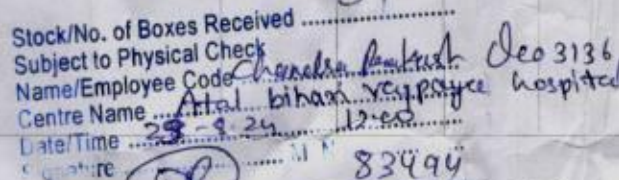 Stock/No. of Boxes Received ..................
Subject to Physical Check
Name/Employee Code Chandra Prakash Oco3136
Centre Name Atal bihari vajpayee hospital
Date/Time 28-8-24 12:00
Signature
83494